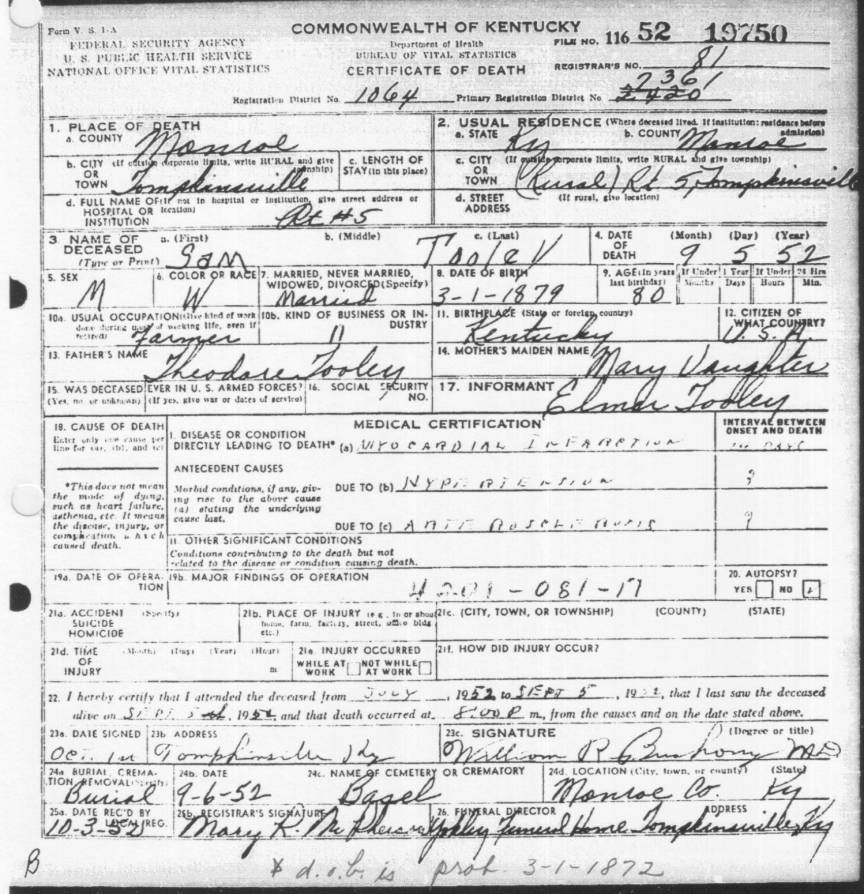 Form V. S. 1-A
COMMONWEALTH OF KENTUCKY
FEDERAL SECURITY AGENCY
U. S. PUBLIC HEALTH SERVICE
NATIONAL OFFICE VITAL STATISTICS
Department of Health
BUREAU OF VITAL STATISTICS
CERTIFICATE OF DEATH
FILE NO. 116 52 19750
REGISTRAR'S NO. 81
Registration District No. 1064 Primary Registration District No. 2361
2420
1. PLACE OF DEATH
a. COUNTY Monroe
2. USUAL RESIDENCE (Where deceased lived. If institution: residence before admission)
a. STATE Ky b. COUNTY Monroe
b. CITY (If outside corporate limits, write RURAL and give township)
OR
TOWN Tompkinsville
c. LENGTH OF
STAY (in this place)
c. CITY (If outside corporate limits, write RURAL and give township)
OR
TOWN (Rural) Rt 5, Tompkinsville
d. FULL NAME OF (If not in hospital or institution, give street address or location)
HOSPITAL OR
INSTITUTION Rt #5
d. STREET
ADDRESS
(If rural, give location)
3. NAME OF
DECEASED
(Type or Print)
a. (First) b. (Middle) c. (Last)
Sam Tooley
4. DATE
OF
DEATH
(Month) (Day) (Year)
9 5 52
5. SEX
M
6. COLOR OR RACE
W
7. MARRIED, NEVER MARRIED,
WIDOWED, DIVORCED (Specify)
Married
8. DATE OF BIRTH
3-1-1879
9. AGE (In years
last birthday)
80
If Under 1 Year
Months Days
If Under 24 Hrs
Hours Min.
10a. USUAL OCCUPATION (Give kind of work
done during most of working life, even if
retired)
Farmer
10b. KIND OF BUSINESS OR IN-
DUSTRY
"
11. BIRTHPLACE (State or foreign country)
Kentucky
12. CITIZEN OF
WHAT COUNTRY?
U.S.A.
13. FATHER'S NAME
Theodore Tooley
14. MOTHER'S MAIDEN NAME
Mary Vaughter
15. WAS DECEASED EVER IN U. S. ARMED FORCES?
(Yes, no, or unknown) (If yes, give war or dates of service)
16. SOCIAL SECURITY
NO.
17. INFORMANT
Elmer Tooley
18. CAUSE OF DEATH
Enter only one cause per
line for (a), (b), and (c)
MEDICAL CERTIFICATION
INTERVAL BETWEEN
ONSET AND DEATH
I. DISEASE OR CONDITION
DIRECTLY LEADING TO DEATH* (a) MYOCARDIAL INFARCTION
DAYS
*This does not mean
the mode of dying,
such as heart failure,
asthenia, etc. It means
the disease, injury, or
complication which
caused death.
ANTECEDENT CAUSES
Morbid conditions, if any, giv-
ing rise to the above cause
(a) stating the underlying
cause last.
DUE TO (b) HYPERTENSION ?
DUE TO (c) ?
II. OTHER SIGNIFICANT CONDITIONS
Conditions contributing to the death but not
related to the disease or condition causing death.
19a. DATE OF OPERA-
TION
19b. MAJOR FINDINGS OF OPERATION
4201-081-17
20. AUTOPSY?
YES NO
21a. ACCIDENT (Specify)
SUICIDE
HOMICIDE
21b. PLACE OF INJURY (e.g., in or about
home, farm, factory, street, office bldg.
etc.)
21c. (CITY, TOWN, OR TOWNSHIP) (COUNTY) (STATE)
21d. TIME (Month) (Day) (Year) (Hour)
OF
INJURY m
21e. INJURY OCCURRED
WHILE AT NOT WHILE
WORK AT WORK
21f. HOW DID INJURY OCCUR?
22. I hereby certify that I attended the deceased from JULY, 1952 to SEPT 5, 1952, that I last saw the deceased
alive on SEPT. 5, 1952 and that death occurred at 8:00 P m., from the causes and on the date stated above.
23a. DATE SIGNED
Oct. 1st
23b. ADDRESS
Tompkinsville Ky
23c. SIGNATURE (Degree or title)
William R MD
24a. BURIAL, CREMA-
TION REMOVAL (Specify)
Burial
24b. DATE
9-6-52
24c. NAME OF CEMETERY OR CREMATORY
Basel
24d. LOCATION (City, town, or county) (State)
Monroe Co. Ky
25a. DATE REC'D BY
LOCAL REG.
10-3-52
25b. REGISTRAR'S SIGNATURE
Mary K.
26. FUNERAL DIRECTOR ADDRESS
Funeral Home Tompkinsville, Ky
B
* d.o.b. is prob. 3-1-1872